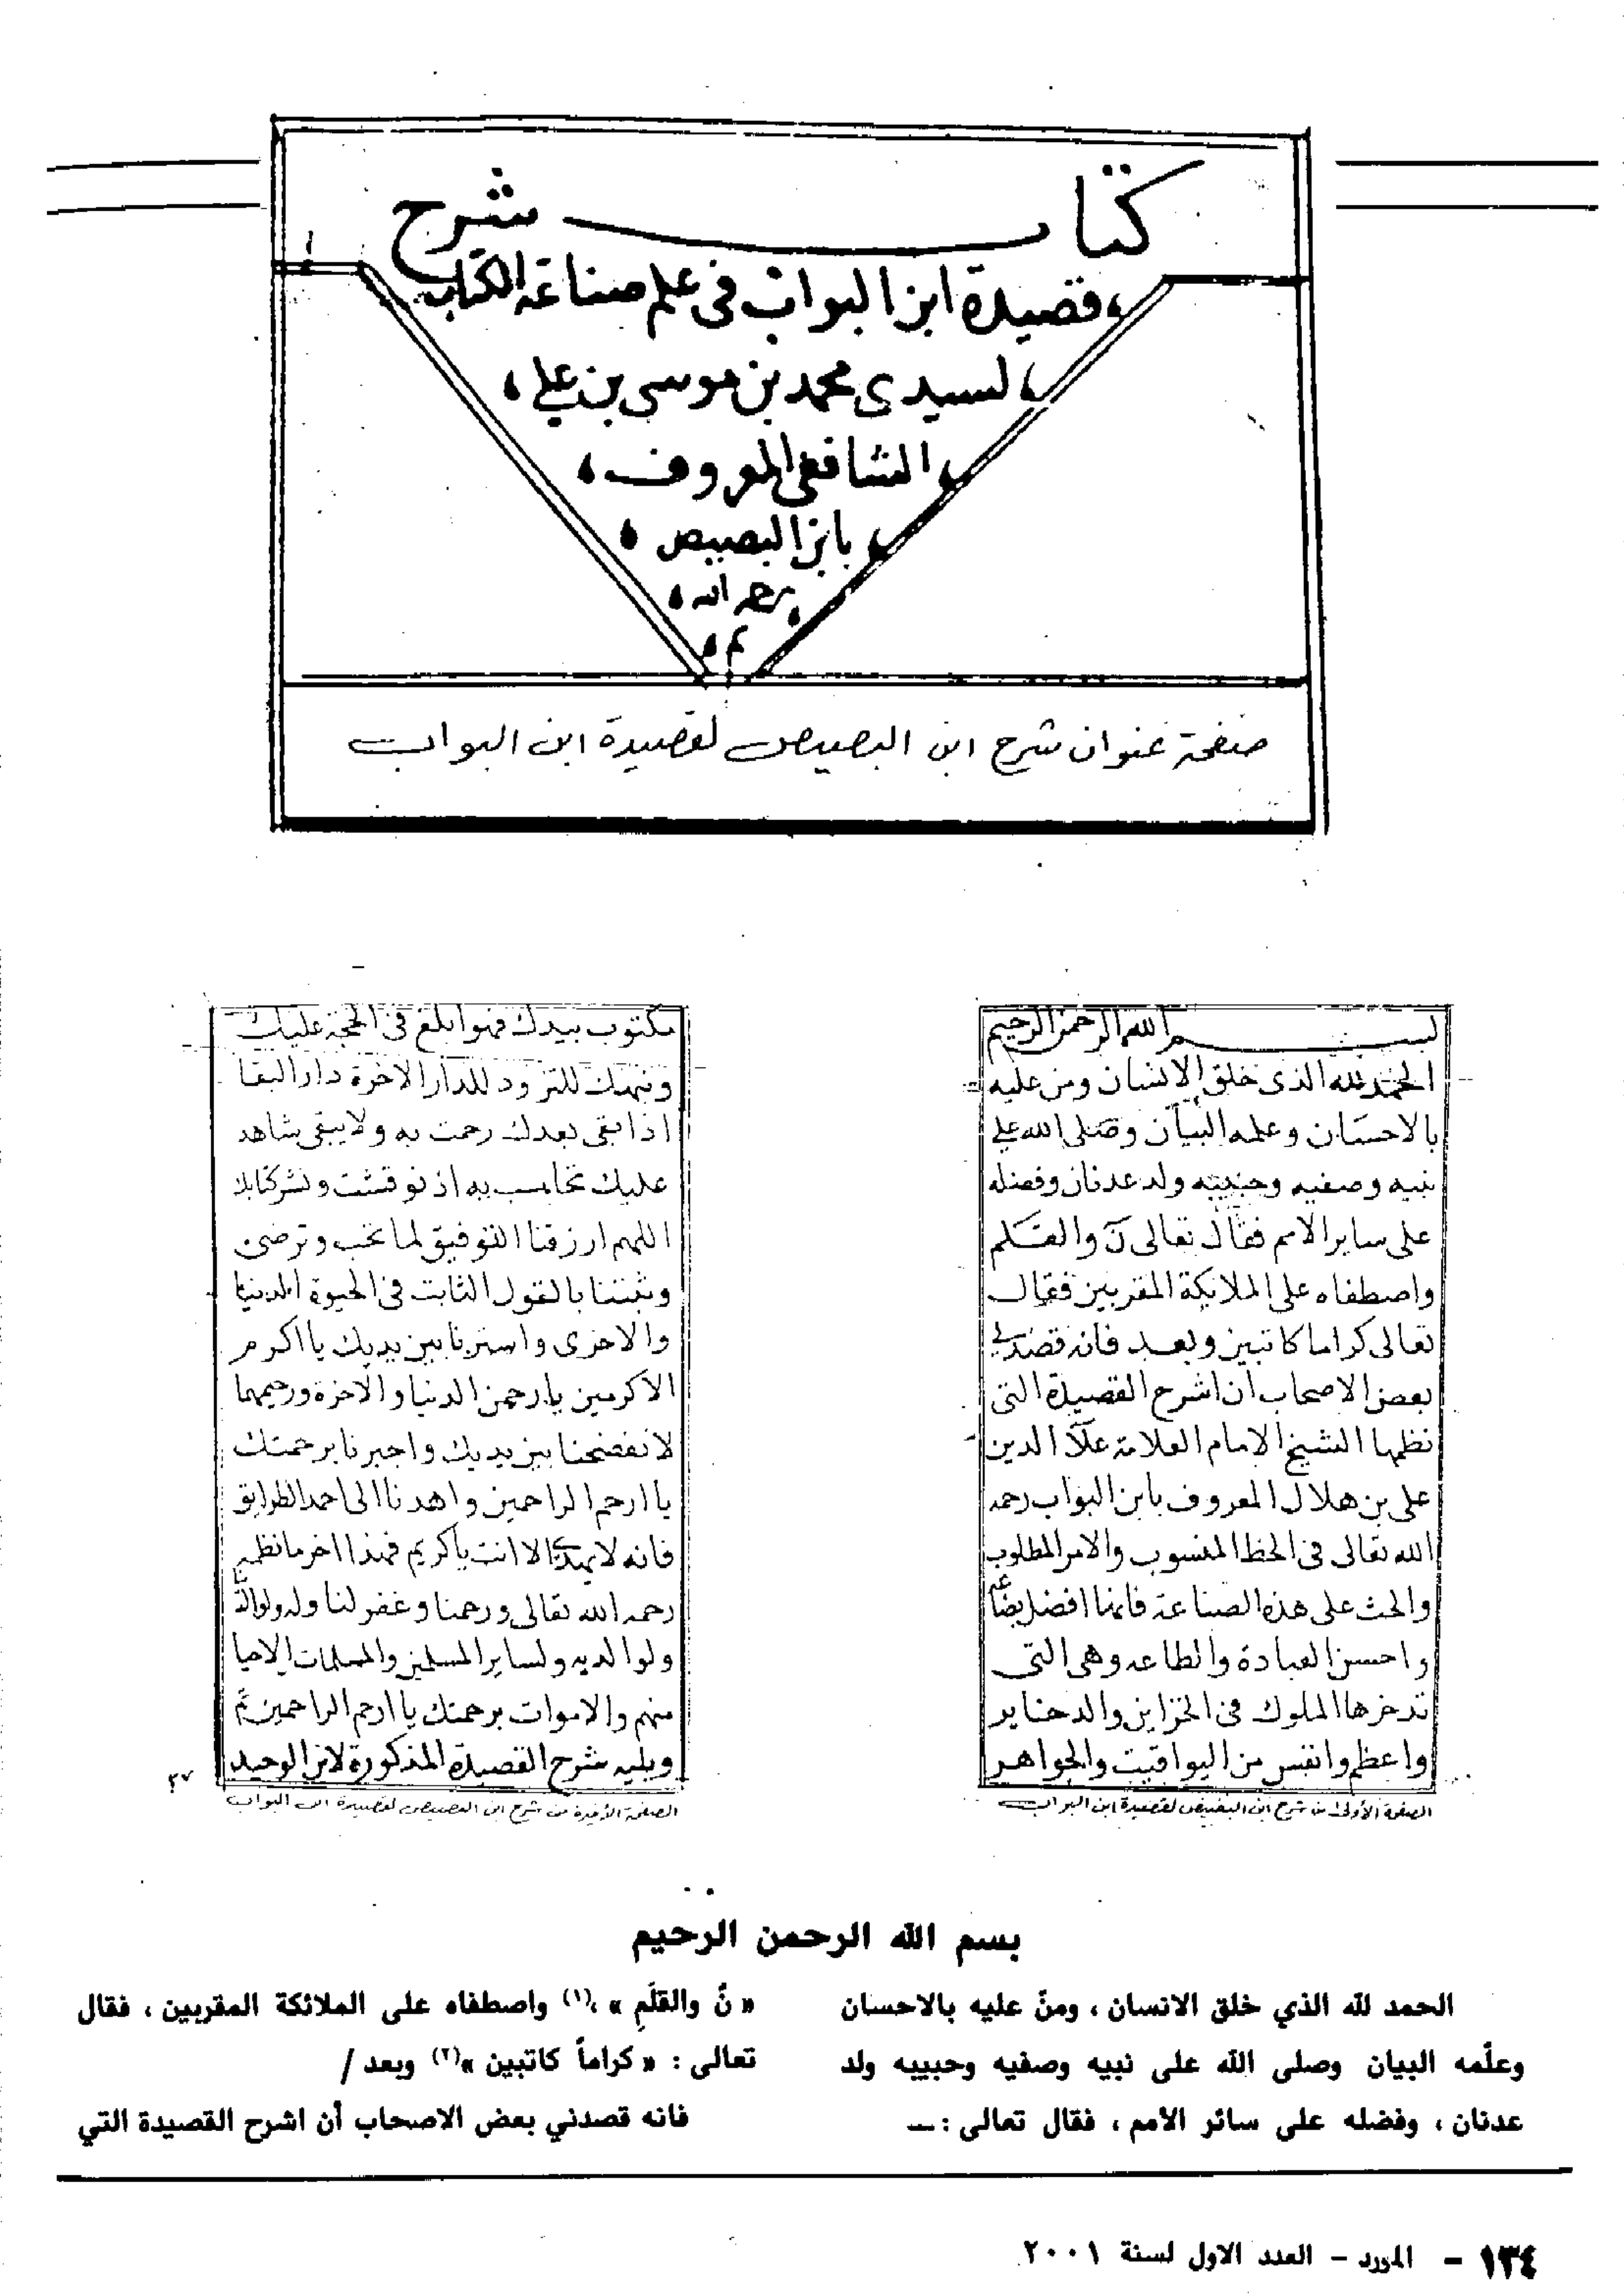 كتاب شرح
قصيدة ابن البواب في علم صناعة الكتاب
لسيدي محمد بن موسى بن علي
الشافعي المعروف
بابن البصيص
رحمه الله
م
صفحة عنوان شرح ابن البصيص لقصيدة ابن البواب
بسم الله الرحمن الرحيم
الحمد لله الذى خلق الانسان ومن عليه
بالاحسان وعلمه البيان وصلى الله على
نبيه وصفيه وحبيبه ولد عدنان وفضله
على ساير الامم فقال تعالى ن والقلم
واصطفاه على الملايكة المقربين فقال
تعالى كراما كاتبين وبعد فانه قصدني
بعض الاصحاب ان اشرح القصيدة التى
نظمها الشيخ الامام العلامة علاء الدين
على بن هلال المعروف بابن البواب رحمه
الله تعالى فى الخط المنسوب والامر المطلوب
والحث على هذه الصناعة فانها افضل بضاعه
واحسن العبادة والطاعه وهى التى
تدخرها الملوك فى الخزاين والدخاير
واعظم وانفس من اليواقيت والجواهر
الصفحة الأولى من شرح ابن البصيص لقصيدة ابن البواب
مكتوب بيدك فهو ابلغ فى الحجة عليك
وينهك للتزود للدار الاخرة دار البقا
اذا بقى بعدك رحمت به ولا يبقى شاهد
عليك تحاسب به اذ نوقشت ونشر كتابك
اللهم ارزقنا التوفيق لما تحب وترضى
وثبتنا بالقول الثابت فى الحيوة الدنيا
والاخرى واسترنا بين يديك يا اكرم
الاكرمين يا رحمن الدنيا والاخرة ورحيمهما
لا تفضحنا بين يديك واجبرنا برحمتك
يا ارحم الراحمين واهدنا الى احمد الطرايق
فانه لا يهدى الا انت يا كريم فهذا اخر ما نظم
رحمه الله تعالى ورحمنا وغفر لنا وله ولوالدينا
ولوالديه ولساير المسلمين والمسلمات الاحيا
منهم والاموات برحمتك يا ارحم الراحمين تم
ويليه شرح القصيدة المذكورة لابن الوحيد
٢٧
الصفحة الأخيرة من شرح ابن البصيص لقصيدة ابن البواب
بسم الله الرحمن الرحيم
الحمد لله الذي خلق الانسان ، ومنّ عليه بالاحسان
وعلّمه البيان وصلى الله على نبيه وصفيه وحبيبه ولد
عدنان ، وفضله على سائر الأمم ، فقال تعالى :ــ
« نّ والقلَمِ » ،(١) واصطفاه على الملائكة المقربين ، فقال
تعالى : « كراماً كاتبين »(٢) وبعد /
فانه قصدني بعض الاصحاب أن اشرح القصيدة التي
١٣٤ - المورد - العدد الاول لسنة ٢٠٠١